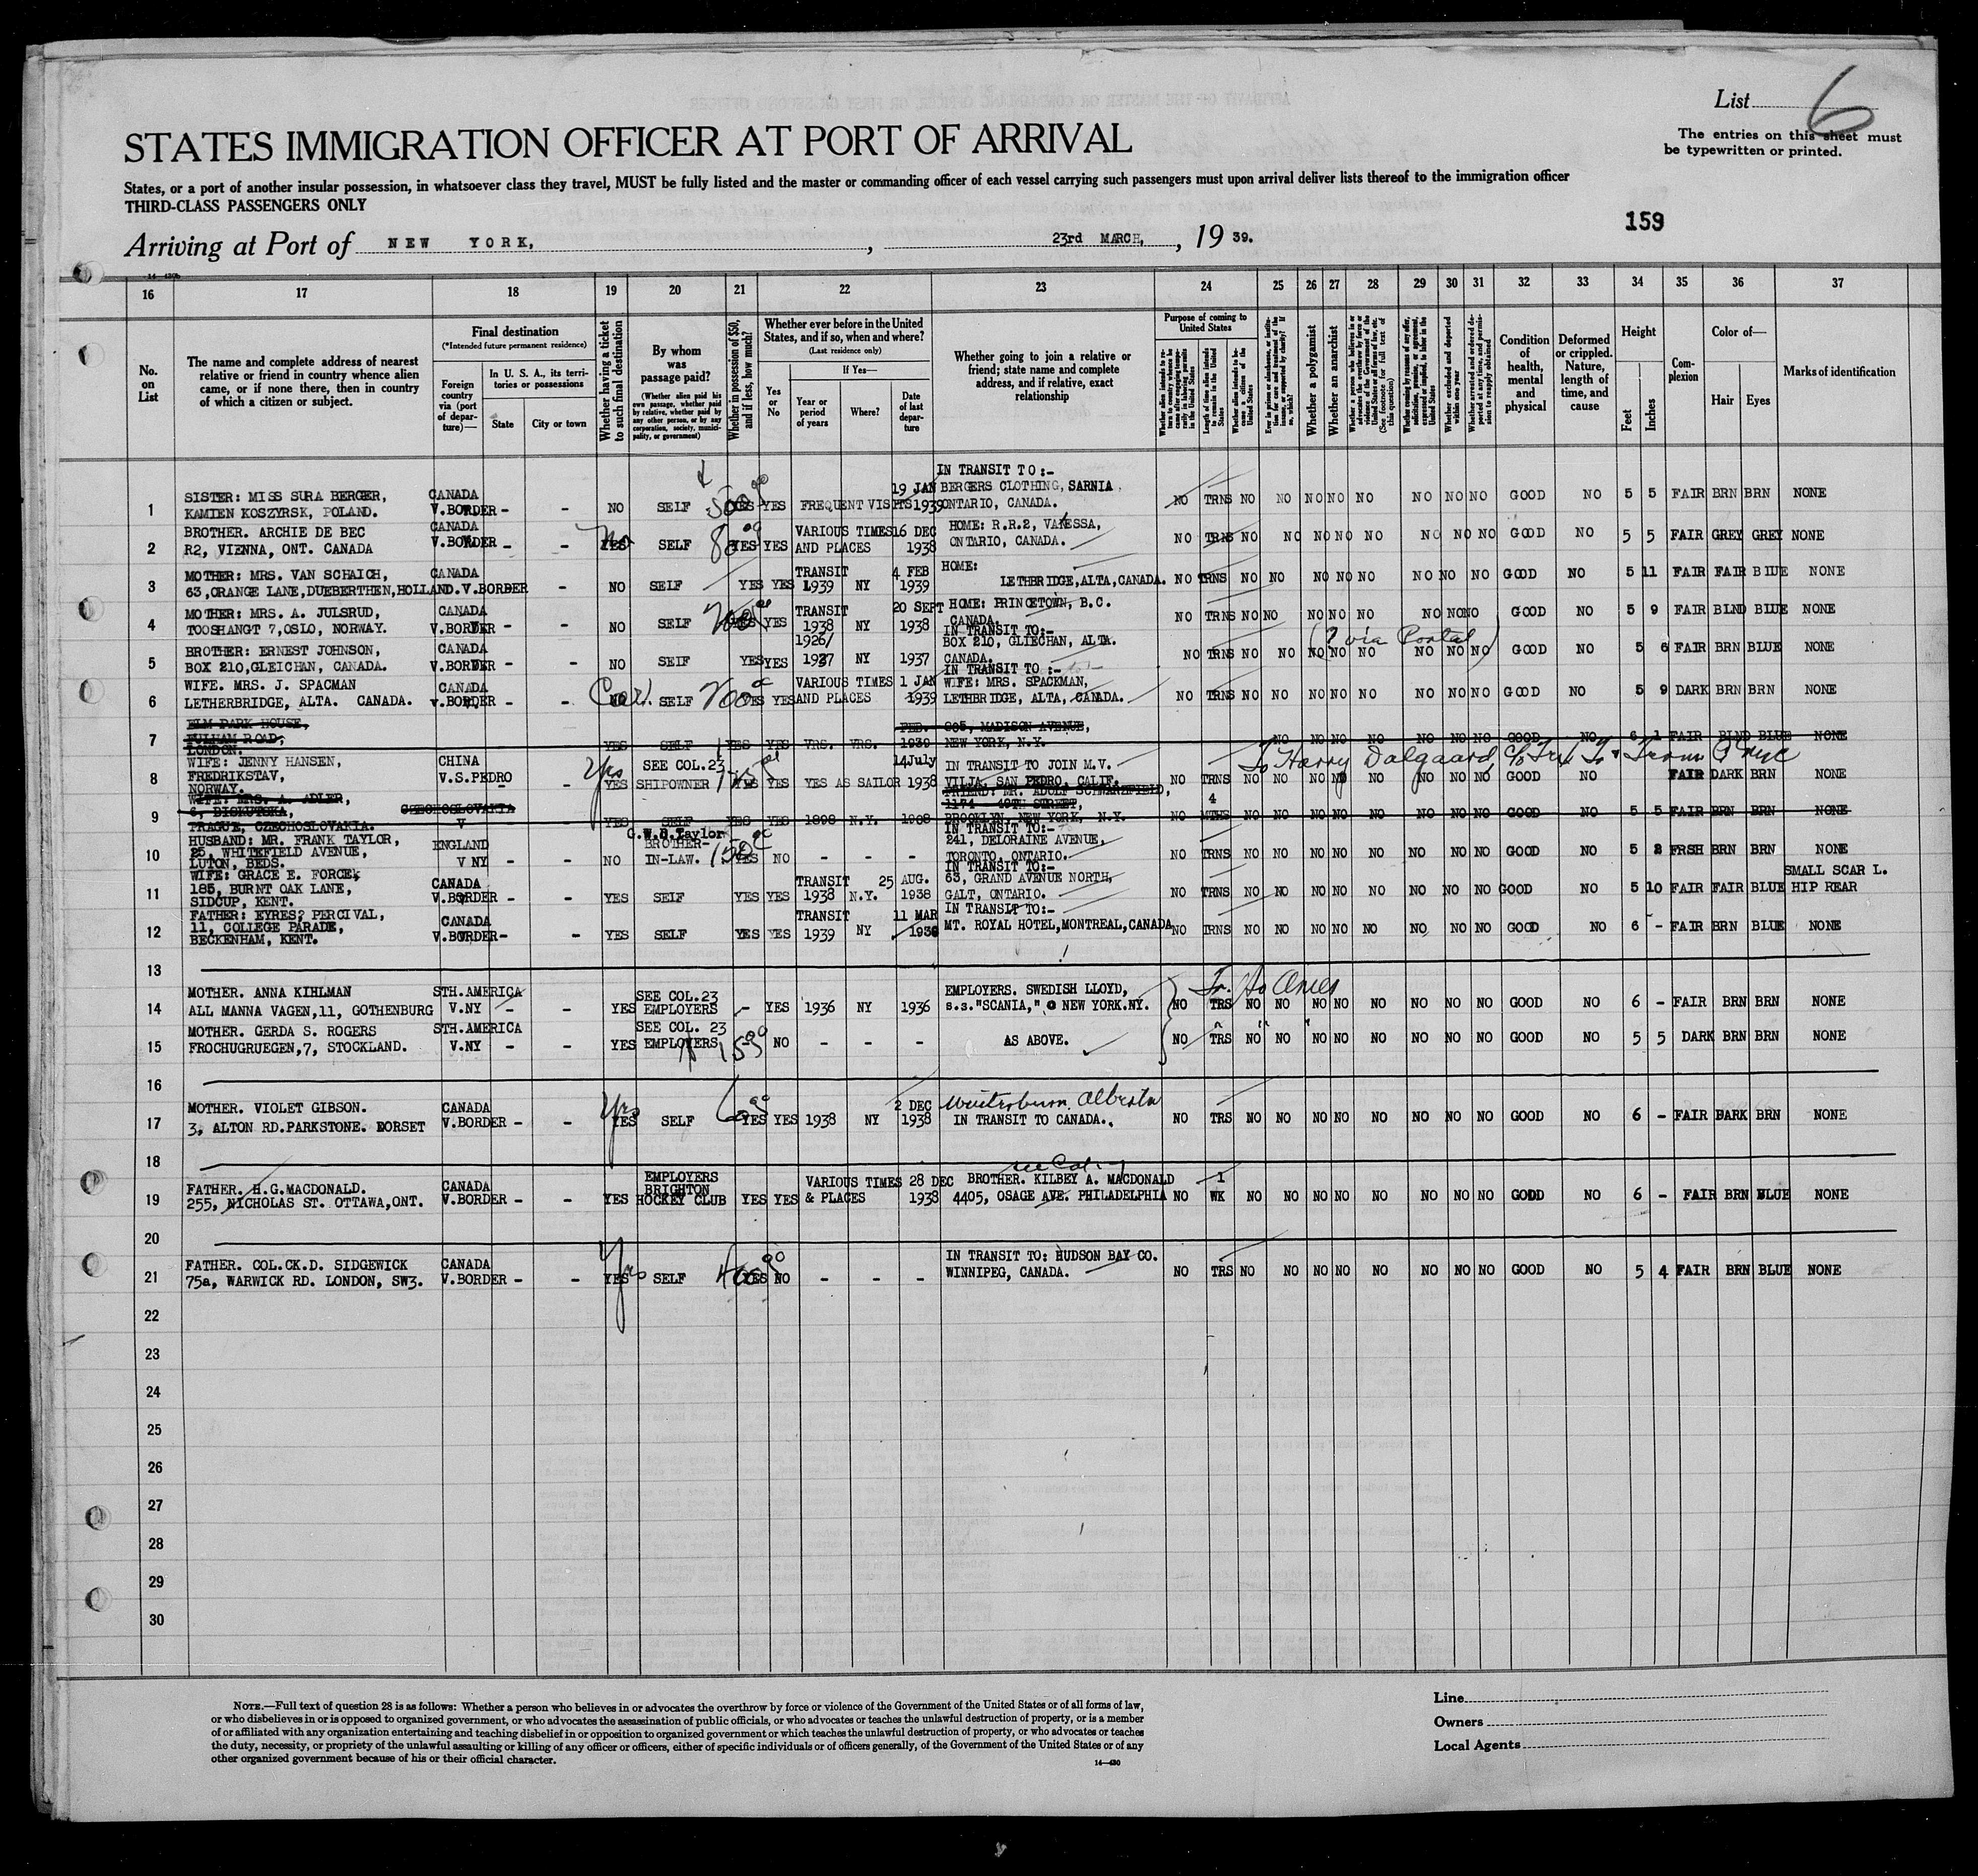 List 6
The entries on this sheet must
be typewritten or printed.
STATES IMMIGRATION OFFICER AT PORT OF ARRIVAL
States, or a port of another insular possession, in whatsoever class they travel, MUST be fully listed and the master or commanding officer of each vessel carrying such passengers must upon arrival deliver lists thereof to the immigration officer
THIRD-CLASS PASSENGERS ONLY
159
Arriving at Port of NEW YORK, , 23rd MARCH, , 19 39.
16 17 18 19 20 21 22 23 24 25 26 27 28 29 30 31 32 33 34 35 36 37
No. on List
The name and complete address of nearest
relative or friend in country whence alien
came, or if none there, then in country
of which a citizen or subject.
Final destination
(*Intended future permanent residence)
Foreign country via (port of departure)—
In U. S. A., its territories or possessions
State
City or town
Whether having a ticket to such final destination
By whom was passage paid?
(Whether alien paid his own passage, whether paid by relative, whether paid by any other person, or by any corporation, society, municipality, or government)
Whether in possession of $50, and if less, how much?
Whether ever before in the United States, and if so, when and where?
(Last residence only)
Yes or No
If Yes—
Year or period of years
Where?
Date of last departure
Whether going to join a relative or
friend; state name and complete
address, and if relative, exact
relationship
Purpose of coming to United States
Length of time alien intends to remain in the United States
Whether alien intends to become a citizen of the United States
Whether a polygamist
Whether an anarchist
Condition of health, mental and physical
Deformed or crippled. Nature, length of time, and cause
Height
Feet
Inches
Complexion
Color of—
Hair
Eyes
Marks of identification
1 SISTER: MISS SURA BERGER, KAMIEN KOSZYRSK, POLAND. CANADA V.BORDER - - NO SELF YES YES FREQUENT VISITS 19 JAN 1939 IN TRANSIT TO:- BERGERS CLOTHING, SARNIA ONTARIO, CANADA. NO TRNS NO NO NO NO NO NO NO NO GOOD NO 5 5 FAIR BRN BRN NONE
2 BROTHER. ARCHIE DE BEC R2, VIENNA, ONT. CANADA CANADA V.BORDER - - YES No SELF YES YES VARIOUS TIMES AND PLACES 16 DEC 1938 HOME: R.R.2, VANESSA, ONTARIO, CANADA. NO TRNS NO NO NO NO NO NO NO NO GOOD NO 5 5 FAIR GREY GREY NONE
3 MOTHER: MRS. VAN SCHAICH, 63,ORANGE LANE,DUEBERTHEN,HOLLAND. CANADA V.BORDER - NO SELF YES YES TRANSIT 1939 NY 4 FEB 1939 HOME: LETHBRIDGE,ALTA,CANADA. NO TRNS NO NO NO NO NO NO NO NO GOOD NO 5 11 FAIR FAIR BLUE NONE
4 MOTHER: MRS. A. JULSRUD, TOOSHANGT 7,OSLO, NORWAY. CANADA V.BORDER - - NO SELF YES YES TRANSIT 1938 NY 20 SEPT 1938 HOME: PRINCETOWN, B.C. CANADA. NO TRNS NO NO NO NO NO NO NO NO GOOD NO 5 9 FAIR BLND BLUE NONE
(? via Portal)
5 BROTHER: ERNEST JOHNSON, BOX 210,GLEICHAN, CANADA. CANADA V.BORDER - - NO SELF YES YES 1926/ 1937 NY 1937 IN TRANSIT TO:- BOX 210, GLIECHAN, ALTA. CANADA. NO TRNS NO NO NO NO NO NO NO NO GOOD NO 5 6 FAIR BRN BLUE NONE
6 WIFE. MRS. J. SPACMAN LETHERBRIDGE, ALTA. CANADA. CANADA V.BORDER - - SELF YES YES VARIOUS TIMES AND PLACES 1 JAN 1939 IN TRANSIT TO :- WIFE: MRS. SPACKMAN, LETHBRIDGE, ALTA, CANADA. NO TRNS NO NO NO NO NO NO NO NO GOOD NO 5 9 DARK BRN BRN NONE
7 ELM PARK HOUSE, FULHAM ROAD, LONDON. YES SELF YES YES VRS. VRS. FEB. 1939 865, MADISON AVENUE, NEW YORK, N.Y. NO NO NO NO NO NO NO GOOD NO 6 1 FAIR BLND BLUE NONE
To Harry Dalgaard, c/o
8 WIFE: JENNY HANSEN, FREDRIKSTAV, NORWAY. CHINA V.S.PEDRO - Yes YES SEE COL.23 SHIPOWNER YES YES YES AS SAILOR 14July 1938 IN TRANSIT TO JOIN M.V. VILJA, SAN PEDRO, CALIF. NO TRNS NO NO NO NO NO NO NO NO GOOD NO FAIR DARK BRN NONE
9 WIFE: MRS. A. ADLER, 6, BISKUTSKA, PRAGUE, CZECHOSLOVAKIA. CZECHOSLOVAKIA V YES SELF YES YES 1898 N.Y. 1908 FRIEND: MR. ADOLF SCHWARZFIELD, 1174 - 40TH STREET, BROOKLYN, NEW YORK, N.Y. NO 4 MTHS NO NO NO NO NO NO NO NO GOOD NO 5 5 FAIR BRN BRN NONE
10 HUSBAND: MR. FRANK TAYLOR, 25, WHITEFIELD AVENUE, LUTON, BEDS. ENGLAND V NY - - NO G.W.S.Taylor BROTHER-IN-LAW. YES NO - - - IN TRANSIT TO:- 241, DELORAINE AVENUE, TORONTO, ONTARIO. NO TRNS NO NO NO NO NO NO NO NO GOOD NO 5 2 FRSH BRN BRN NONE
11 WIFE: GRACE E. FORCE, 185, BURNT OAK LANE, SIDCUP, KENT. CANADA V.BORDER - - YES SELF YES YES TRANSIT 1938 N.Y. 25 AUG. 1938 IN TRANSIT TO:- 63, GRAND AVENUE NORTH, GALT, ONTARIO. NO TRNS NO NO NO NO NO NO NO NO GOOD NO 5 10 FAIR FAIR BLUE SMALL SCAR L. HIP REAR
12 FATHER: EYRES, PERCIVAL, 11, COLLEGE PARADE, BECKENHAM, KENT. CANADA V.BORDER - - YES SELF YES YES TRANSIT 1939 NY 11 MAR 1939 IN TRANSIT TO:- MT. ROYAL HOTEL,MONTREAL,CANADA NO TRNS NO NO NO NO NO NO NO NO GOOD NO 6 - FAIR BRN BLUE NONE
13
14 MOTHER. ANNA KIHLMAN ALL MANNA VAGEN,11, GOTHENBURG STH.AMERICA V.NY - - YES SEE COL.23 EMPLOYERS - YES 1936 NY 1936 EMPLOYERS. SWEDISH LLOYD, s.s."SCANIA," NEW YORK.NY. NO TRS NO NO NO NO NO NO NO NO GOOD NO 6 - FAIR BRN BRN NONE
15 MOTHER. GERDA S. ROGERS FROCHUGRUEGEN,7, STOCKLAND. STH.AMERICA V.NY - - YES SEE COL. 23 EMPLOYERS NO - - - AS ABOVE. NO TRS NO NO NO NO NO NO NO NO GOOD NO 5 5 DARK BRN BRN NONE
16
17 MOTHER. VIOLET GIBSON. 3, ALTON RD.PARKSTONE. DORSET CANADA V.BORDER - - Yes YES SELF YES YES 1938 NY 2 DEC 1938 Winterburn Alberta IN TRANSIT TO CANADA. NO TRS NO NO NO NO NO NO NO NO GOOD NO 6 - FAIR DARK BRN NONE
18
19 FATHER. H.G.MACDONALD. 255, NICHOLAS ST. OTTAWA,ONT. CANADA V.BORDER - - YES EMPLOYERS BRIGHTON HOCKEY CLUB YES YES VARIOUS TIMES & PLACES 28 DEC 1938 BROTHER. KILBEY A. MACDONALD 4405, OSAGE AVE. PHILADELPHIA NO 1 WK NO NO NO NO NO NO NO NO GOOD NO 6 - FAIR BRN BLUE NONE
20
21 FATHER. COL.CK.D. SIDGEWICK 75a, WARWICK RD. LONDON, SW3. CANADA V.BORDER - - Yes YES SELF YES NO - - - IN TRANSIT TO: HUDSON BAY CO. WINNIPEG, CANADA. NO TRS NO NO NO NO NO NO NO NO GOOD NO 5 4 FAIR BRN BLUE NONE
22
23
24
25
26
27
28
29
30
NOTE.—Full text of question 28 is as follows: Whether a person who believes in or advocates the overthrow by force or violence of the Government of the United States or of all forms of law,
or who disbelieves in or is opposed to organized government, or who advocates the assassination of public official, or who advocates or teaches the unlawful destruction of property, or is a member
of or affiliated with any organization entertaining and teaching disbelief in or opposition to organized government or which teaches the unlawful destruction of property, or who advocates or teaches
the duty, necessity, or propriety of the unlawful assaulting or killing of any officer or officers, either of specific individuals or of officers generally, of the Government of the United States or of any
other organized government because of his or their official character.
14—430
Line
Owners
Local Agents